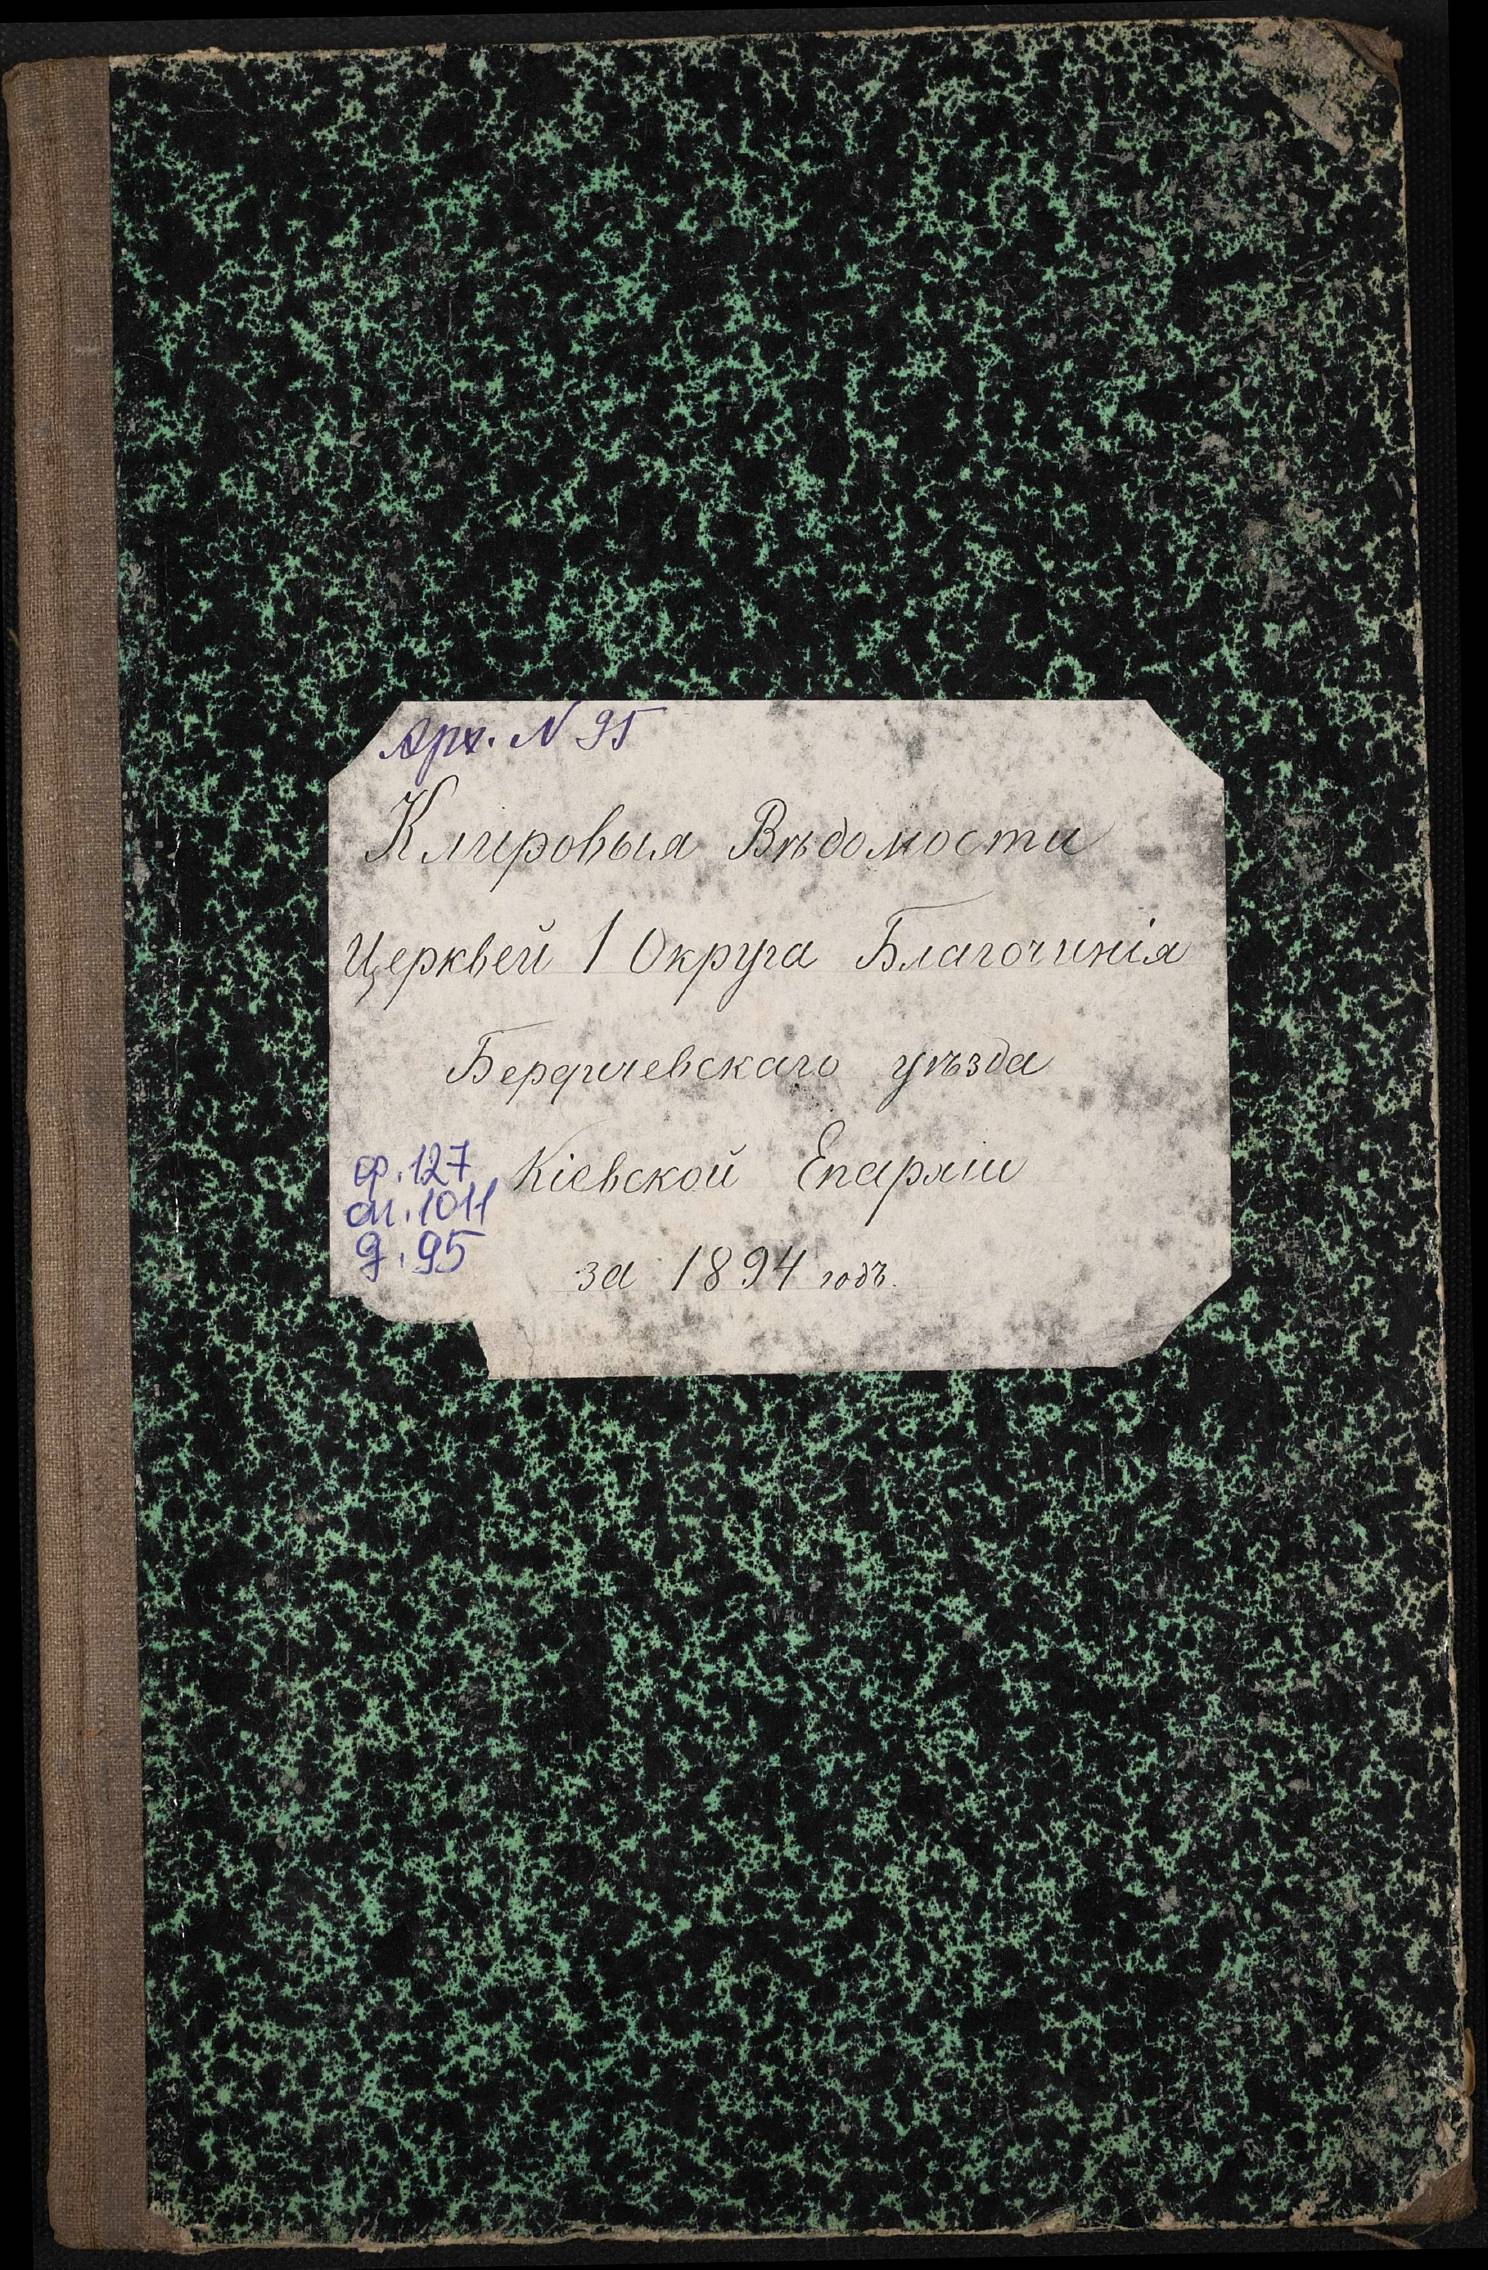 Арх. N 95
Клировыя Вѣдомости
Церквей 1 Округа Благочинія
Бердичевскаго уѣзда
Кіевской Епархіи
за 1894 годъ.
ф. 127
оп. 1011
д. 95